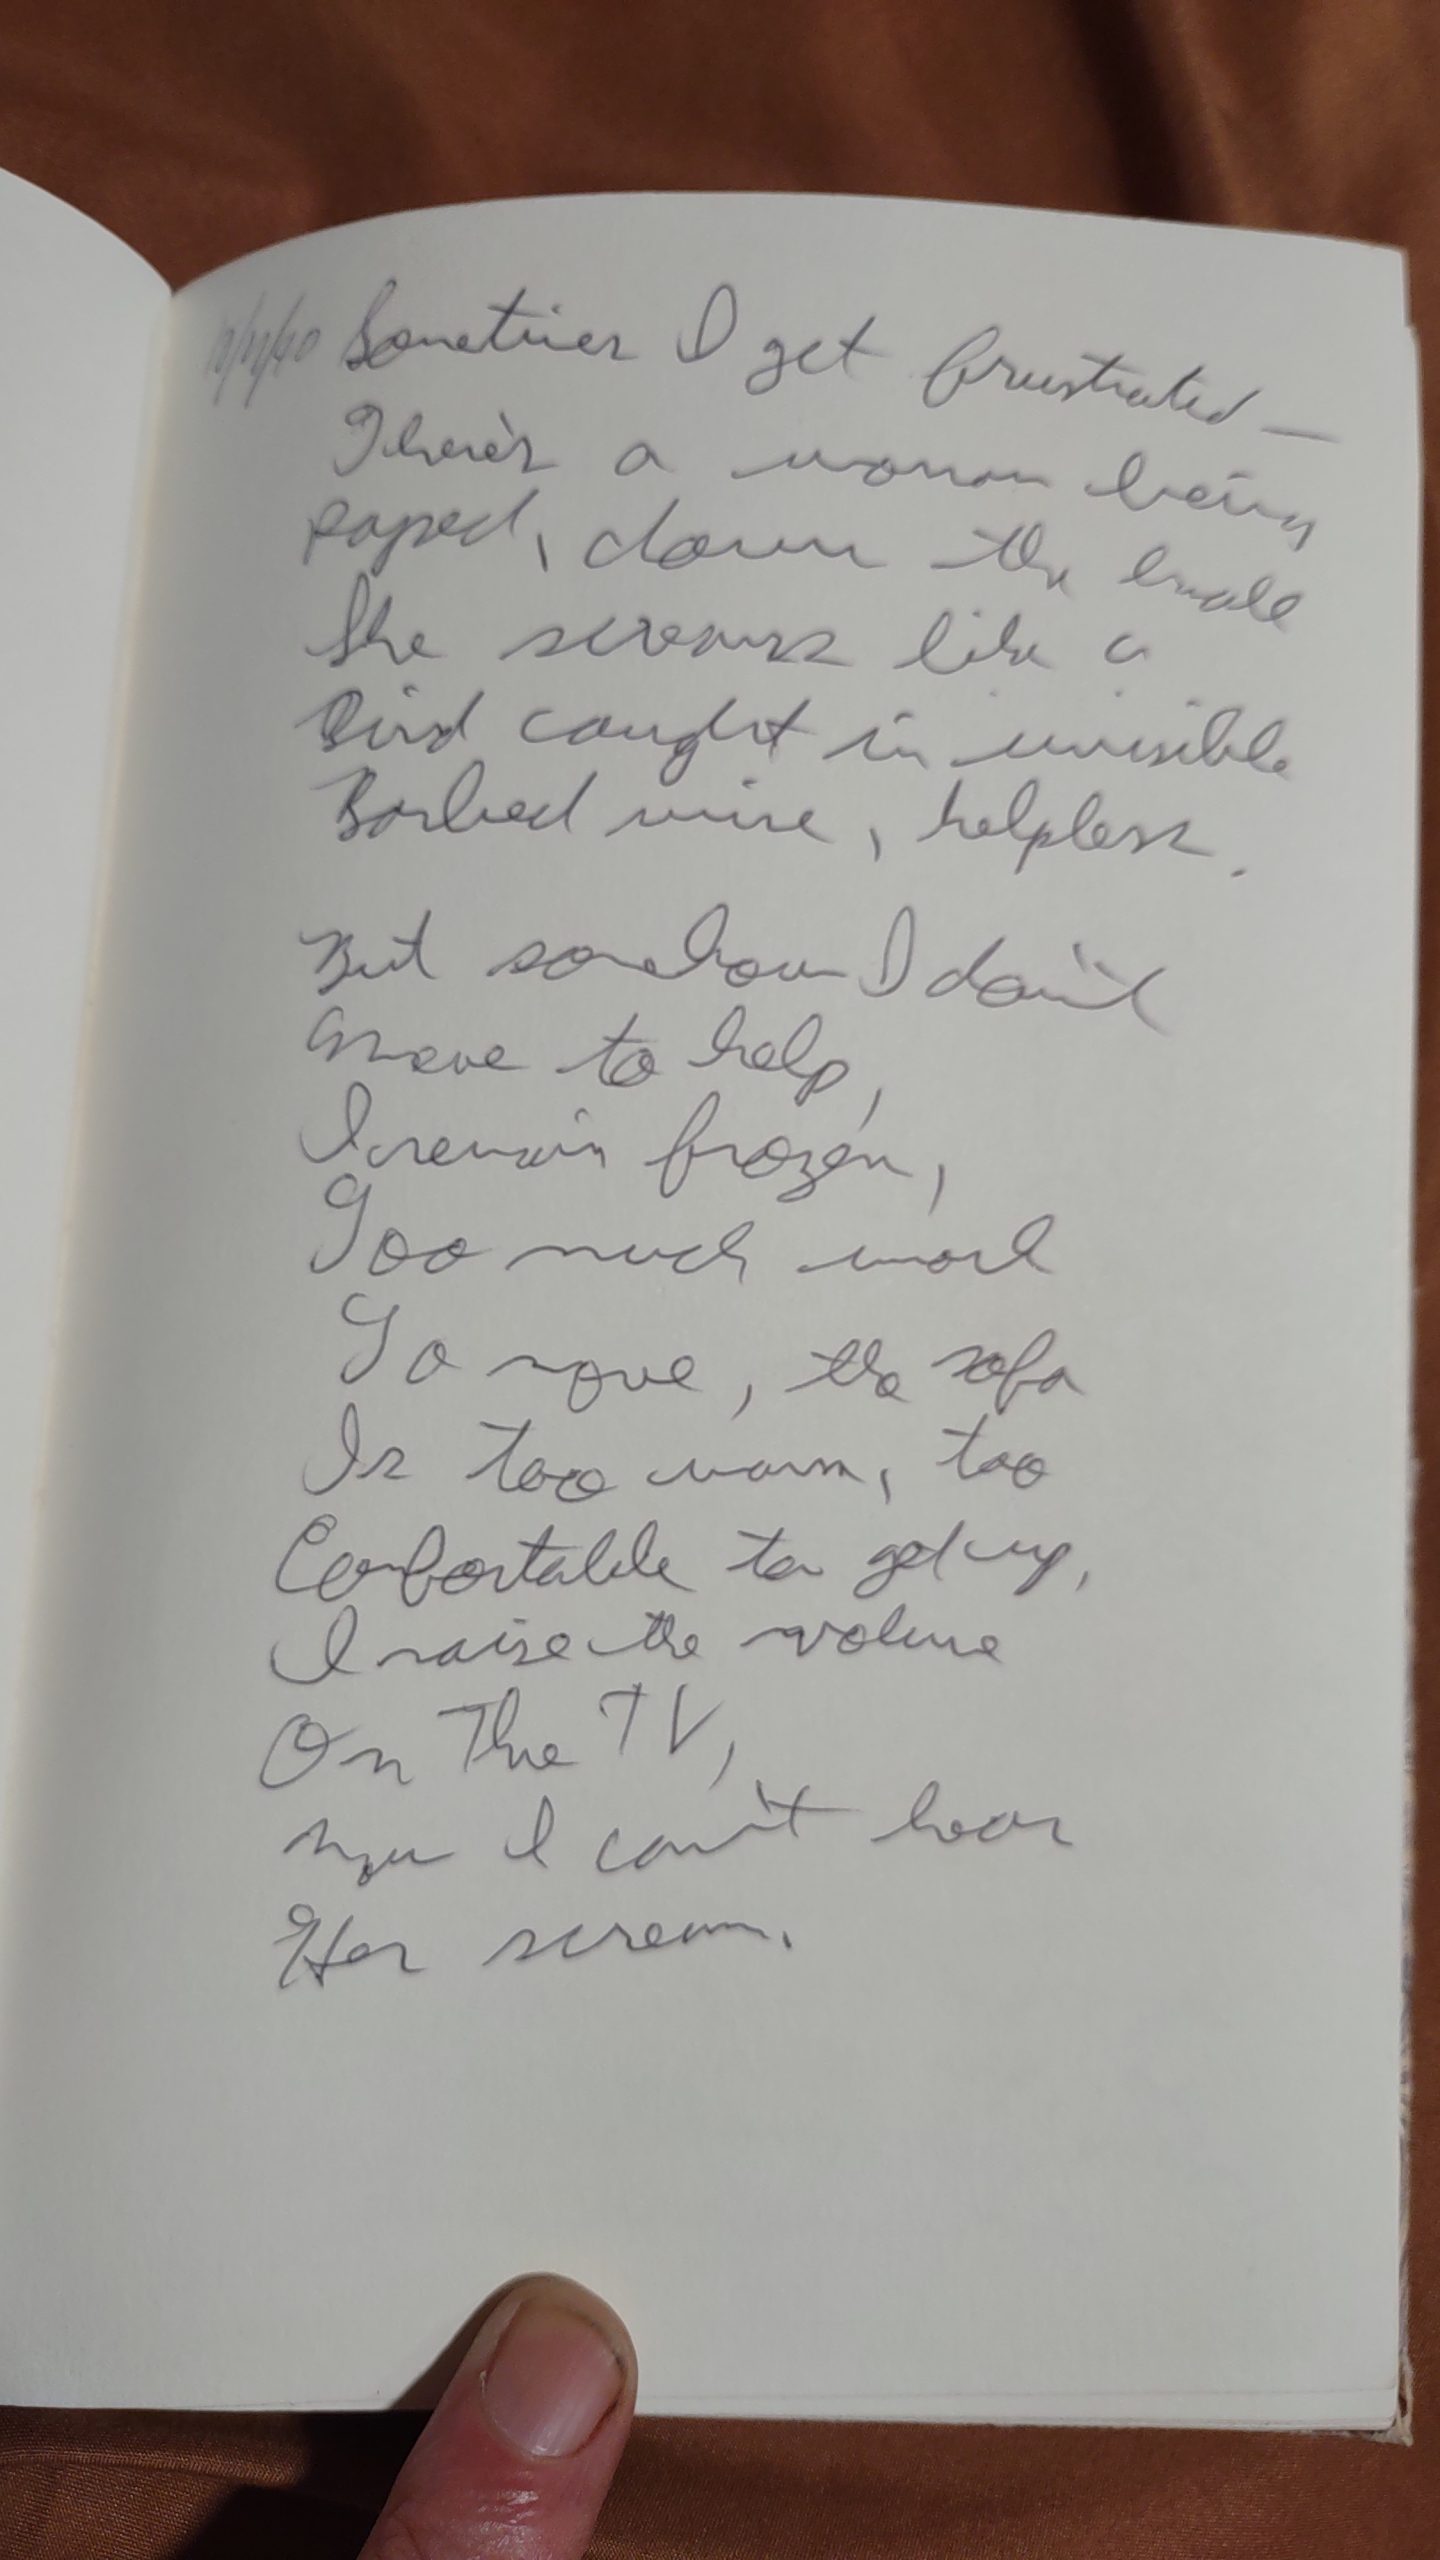 Sometimes I get frustrated —
There's a woman being
raped, down the hall
She screams like a
Bird caught in invisible
Barbed wire, helpless.
But somehow I don't
Move to help,
I remain frozen,
Too much work
To move, the sofa
Is too warm, too
Comfortable to get up,
I raise the volume
On The TV,
Now I can't hear
Her scream.